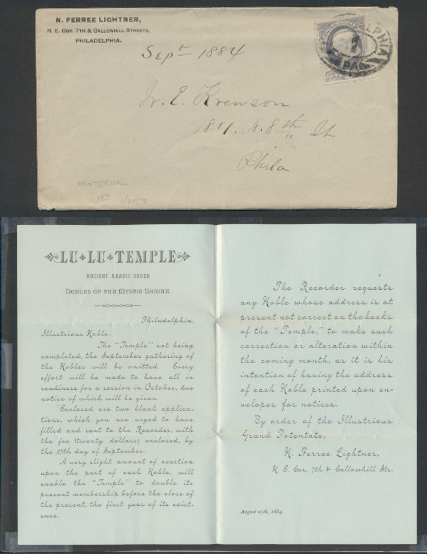 N. FERREE LIGHTNER,
N. E. COR. 7TH & CALLOWHILL STREETS,
PHILADELPHIA.
Sept 1884
W. E. Krewson
1801 N. 8th St
Phila
LU LU TEMPLE
ANCIENT ARABIC ORDER
NOBLES OF THE MYSTIC SHRINE.
Philadelphia,
Illustrious Noble:
The "Temple" not being
completed, the September gathering of
the Nobles will be omitted. Every
effort will be made to have all in
readiness for a session in October, due
notice of which will be given.
Enclosed are two blank applica-
tions, which you are urged to have
filled and sent to the Recorder, with
the fee (twenty dollars) enclosed, by
the 27th day of September.
A very slight amount of exertion
upon the part of each Noble, will
enable the "Temple" to double its
present membership before the close of
the present, the first year of its exist-
ence.
The Recorder requests
any Noble whose address is at
present not correct on the books
of the "Temple," to make such
correction or alteration within
the coming month, as it is his
intention of having the address
of each Noble printed upon en-
velopes for notices.
By order of the Illustrious
Grand Potentate,
N. Ferree Lightner,
N. E. Cor. 7th & Callowhill Sts.
August 27th, 1884.